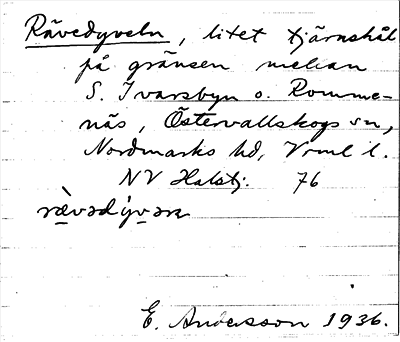 Rävedyveln, litet tjärnhål
på gränsen mellan
S. Ivarsbyn o. Romme-
näs, Östervallskogs sn,
Nordmarks hd, Vrml l.
NV Halstj. 76
rævədy̆vəɳ
E. Andersson 1936.